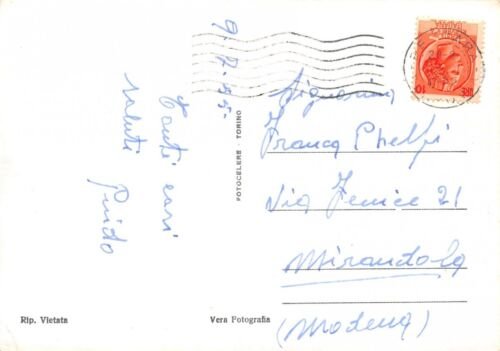 9.7.55.
Tanti cari
saluti
Guido
FOTOCELERE - TORINO
Signorina
Franca Chelfi
Via Fenice 21
Mirandola
(Modena)
Rip. Vietata
Vera Fotografia